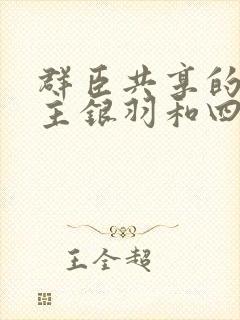 群臣共享的
主银羽和四
王全超